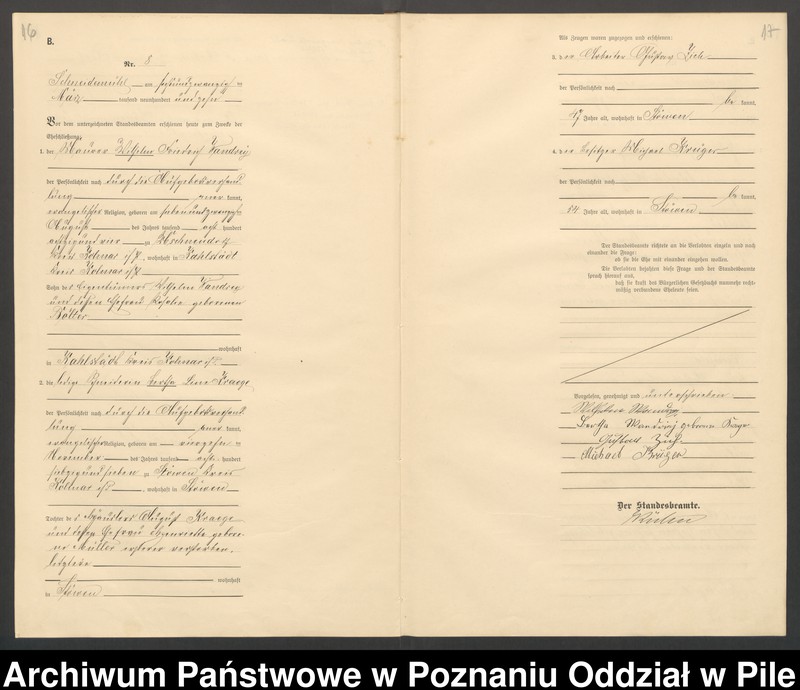 16
B.
Nr. 8
Schneidemühl, am
März tausend neunhundert und zehn
Vor dem unterzeichneten Standesbeamten erschienen heute zum Zwecke der
Eheschließung:
1. der Maurer Wilhelm
der Persönlichkeit nach durch die Aufgebotsverhand
lung kannt,
evangelischer Religion, geboren am siebenundzwanzigsten
August des Jahres tausend acht hundert
achtzig und vier zu
Kreis Kolmar i/P., wohnhaft in Kahlstädt
Kreis Kolmar i/P.
Sohn des Eigentümers Wilhelm
und dessen Ehefrau Rosalie geborenen
wohnhaft
in Kahlstädt Kreis Kolmar i/P.
2. die ledige Bertha Lene Kraege
der Persönlichkeit nach durch die Aufgebotsverhand
lung kannt,
evangelischer Religion, geboren am
November des Jahres tausend acht hundert
siebzig und sieben zu Stöwen Kreis
Kolmar i/P., wohnhaft in Stöwen
Tochter des Häuslers August Kraege
und dessen Ehefrau Henriette gebore-
ne Müller ersterer verstorben,
letztere
wohnhaft
in Stöwen
17
Als Zeugen waren zugezogen und erschienen:
3. der Arbeiter Gustav
der Persönlichkeit nach
be kannt,
Jahre alt, wohnhaft in Stöwen
4. der Besitzer Michael Krüger
der Persönlichkeit nach
be kannt,
54 Jahre alt, wohnhaft in Stöwen
Der Standesbeamte richtete an die Verlobten einzeln und nach
einander die Frage:
ob sie die Ehe mit einander eingehen wollen.
Die Verlobten bejahten diese Frage und der Standesbeamte
sprach hierauf aus,
daß sie kraft des Bürgerlichen Gesetzbuchs nunmehr recht-
mäßig verbundene Eheleute seien.
Vorgelesen, genehmigt und unterschrieben
Wilhelm
Bertha geborene
Gustav
Michael Krüger
Der Standesbeamte.
Archiwum Państwowe w Poznaniu Oddział w Pile